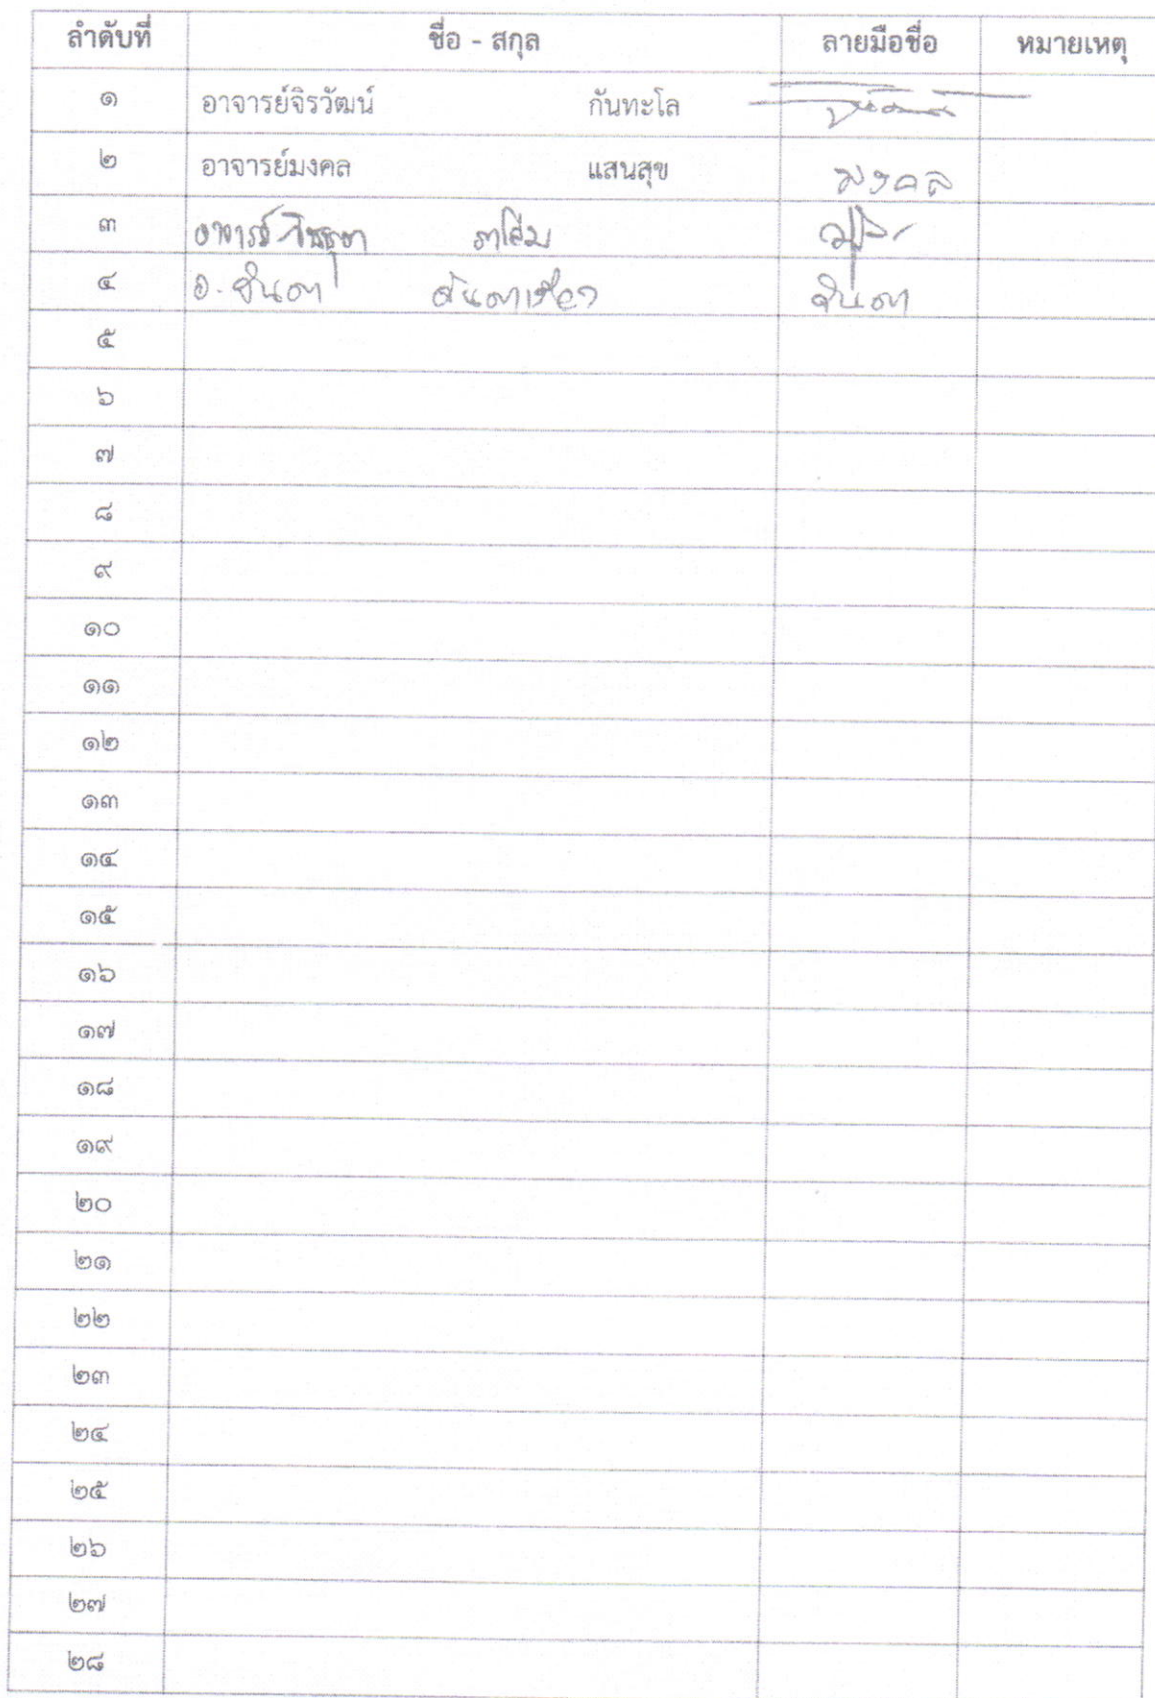 ลำดับที่ ชื่อ - สกุล ลายมือชื่อ หมายเหตุ
๑ อาจารย์จิรวัฒน์ กันทะโล
๒ อาจารย์มงคล แสนสุข มงคล
๓ อาจารย์
๔ อ. จินตา จินตา
๕
๖
๗
๘
๙
๑๐
๑๑
๑๒
๑๓
๑๔
๑๕
๑๖
๑๗
๑๘
๑๙
๒๐
๒๑
๒๒
๒๓
๒๔
๒๕
๒๖
๒๗
๒๘